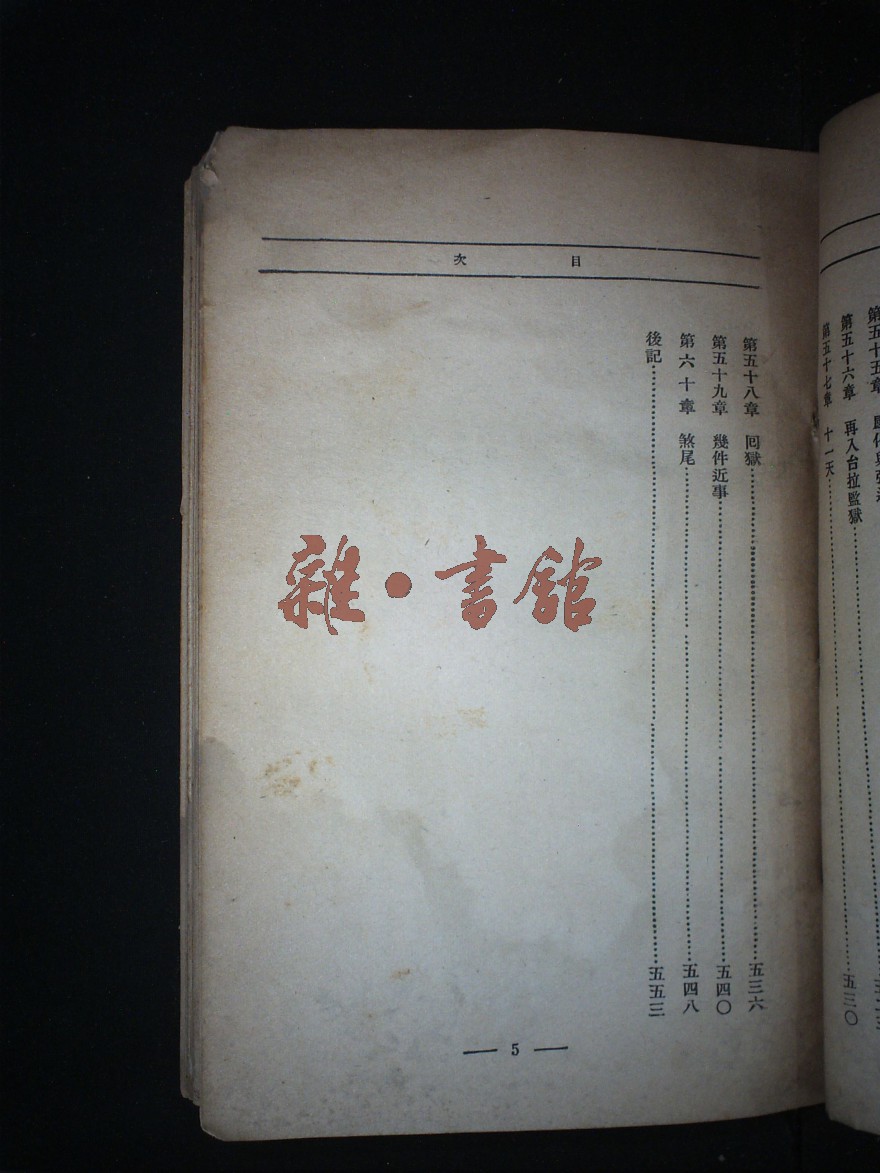 目次
第五十八章 回獄……五三六
第五十九章 幾件近事……五四〇
第六十章 煞尾……五四八
後記……五五三
— 5 —
雜·書館
第五十五章
第五十六章 再入台拉監獄……五三〇
第五十七章 十一天……